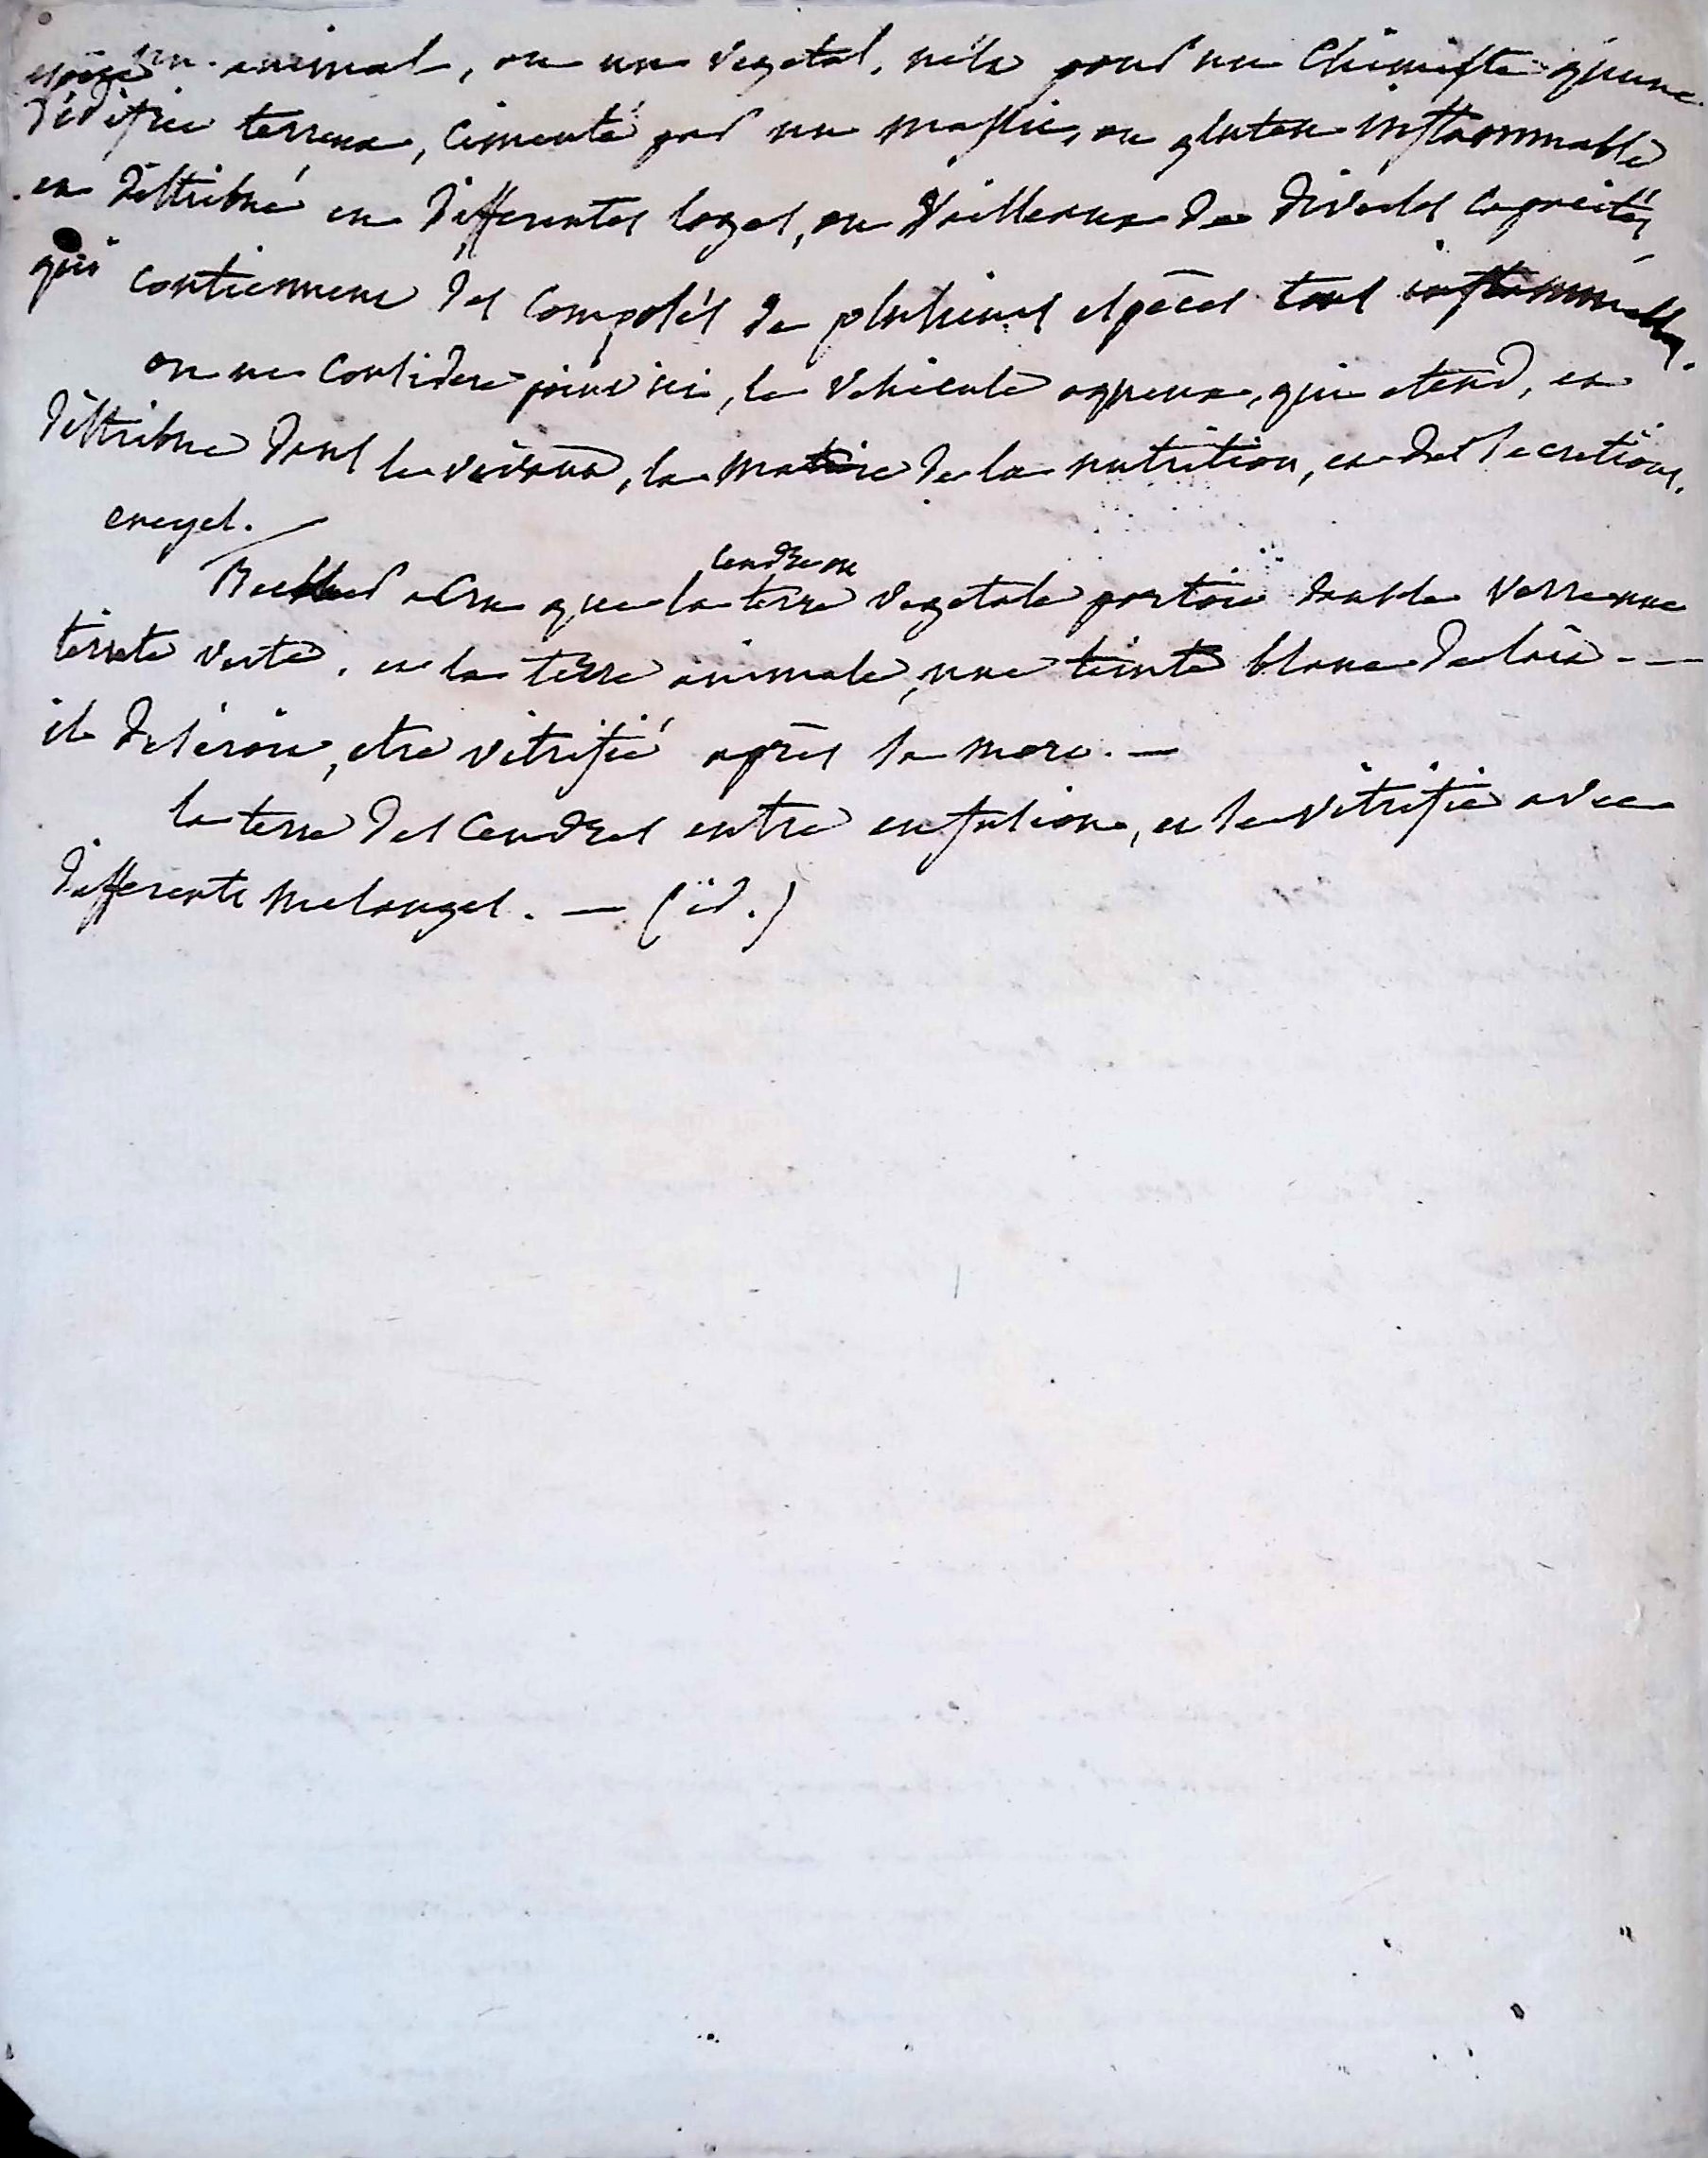 un animal, ou un vegetal, n'est pour un Chimiste qu'un
édifice terreux, cimenté par un mastic, ou gluten inflammable
et distribué en differentes loges, ou vaisseaux de diverses capacités,
qui contiennent des composés de plusieurs especes tous inflammables.
on ne considere point ici, le vehicule aqueux, qui etend, et
distribue dans le vivant, la matiere de la nutrition, et des secretions.
encycl.
Beccher a cru que la terre vegetale portoit dans le verre une
cendre ou
teinte verte, et la terre animale, une teinte blanc de lait. —
il desiroit, etre vitrifié après sa mort. —
la terre des Cendres entre en fusion, et se vitrifie avec
differents melanges. — (id.)